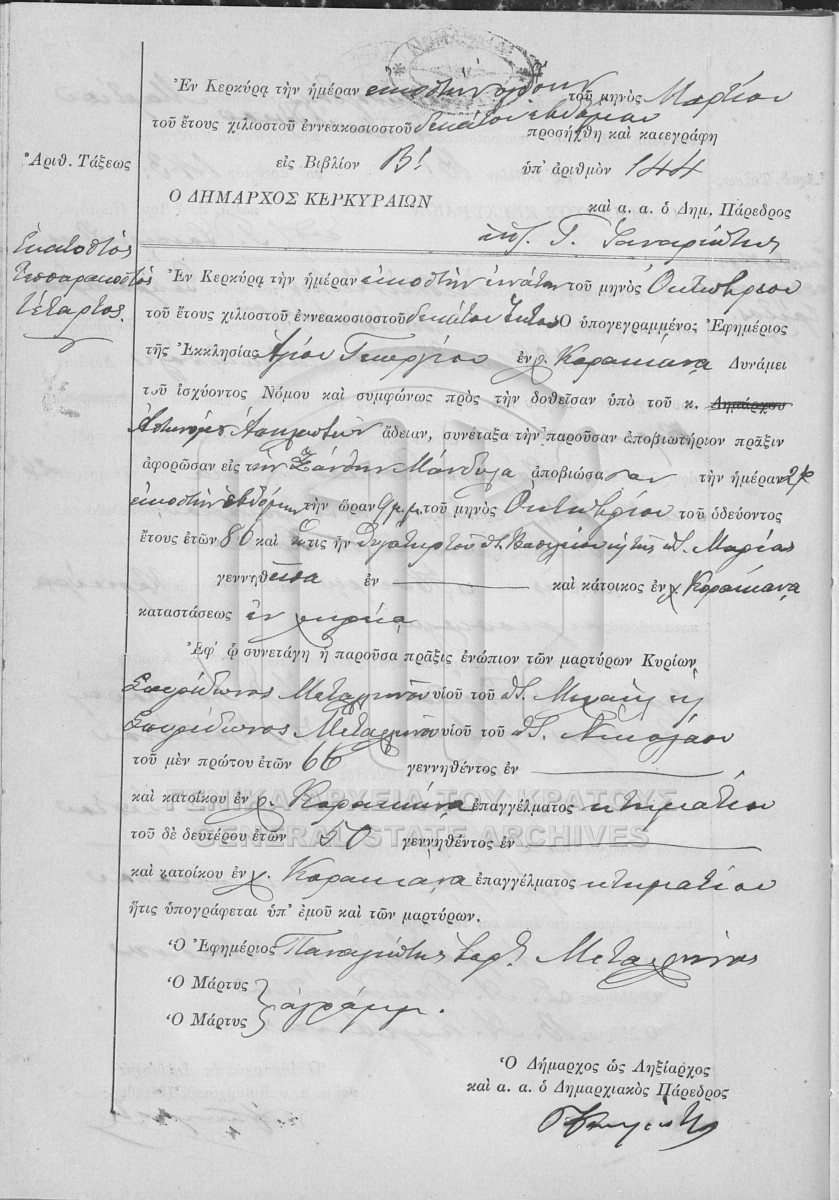 Ἐν Κερκύρᾳ τὴν ἡμέραν εἰκοστὴν τοῦ μηνὸς Μαρτίου
τοῦ ἔτους χιλιοστοῦ ἐννεακοσιοστοῦ δεκάτου ἑβδόμου προσήχθη καὶ κατεγράφη
Ἀριθ. Τάξεως
εἰς Βιβλίον Β! ὑπ' ἀριθμὸν 144
Ο ΔΗΜΑΡΧΟΣ ΚΕΡΚΥΡΑΙΩΝ
καὶ α. α. ὁ Δημ. Πάρεδρος
Γ.
Ἑκατοστὸς
τεσσαρακοστὸς
τέταρτος.
Ἐν Κερκύρᾳ τὴν ἡμέραν εἰκοστὴν ἐνάτην τοῦ μηνὸς Ὀκτωβρίου
τοῦ ἔτους χιλιοστοῦ ἐννεακοσιοστοῦ δεκάτου ἕκτου Ὁ ὑπογεγραμμένος Ἐφημέριος
τῆς Ἐκκλησίας Ἁγίου Γεωργίου ἐν χ. Κορακιάνα Δυνάμει
τοῦ ἰσχύοντος Νόμου καὶ συμφώνως πρὸς τὴν δοθεῖσαν ὑπὸ τοῦ κ. Δημάρχου
Ἀστυνόμου ἄδειαν, συνέταξα τὴν παροῦσαν ἀποβιωτήριον πρᾶξιν
ἀφορῶσαν εἰς τὴν Ξάνθην Μάνδυλα ἀποβιώσασαν τὴν ἡμέραν 27
εἰκοστὴν ἑβδόμην τὴν ὥραν 9 μ.μ. τοῦ μηνὸς Ὀκτωβρίου τοῦ ὁδεύοντος
ἔτους ἐτῶν 80 καὶ ἥτις ἦν θυγάτηρ τοῦ Βασιλείου κ τῆς Μαρίας
γεννηθεῖσα ἐν καὶ κάτοικος ἐν χ Κορακιάνα
καταστάσεως ἐν χηρείᾳ
Ἐφ' ᾧ συνετάγη ἡ παροῦσα πρᾶξις ἐνώπιον τῶν μαρτύρων Κυρίων
Σπυρίδωνος Μεταλληνοῦ υἱοῦ τοῦ Μιχαὴλ κ
Σπυρίδωνος Μεταλληνοῦ υἱοῦ τοῦ Νικολάου
τοῦ μὲν πρώτου ἐτῶν 66 γεννηθέντος ἐν
καὶ κατοίκου ἐν χ. Κορακιάνα ἐπαγγέλματος κτηματίου
ΓΕΝΙΚΑ ΑΡΧΕΙΑ ΤΟΥ ΚΡΑΤΟΥΣ
τοῦ δὲ δευτέρου ἐτῶν 50 γεννηθέντος ἐν
GENERAL STATE ARCHIVES
καὶ κατοίκου ἐν χ. Κορακιάνα ἐπαγγέλματος κτηματίου
ἥτις ὑπογράφεται ὑπ' ἐμοῦ καὶ τῶν μαρτύρων.
Ὁ Ἐφημέριος Παναγιώτης Μεταλληνὸς
Ὁ Μάρτυς
Ὁ Μάρτυς ἀγράμμ.
Ὁ Δήμαρχος ὡς Ληξίαρχος
καὶ α. α. ὁ Δημαρχιακὸς Πάρεδρος